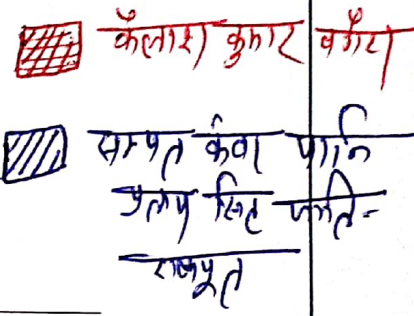 कैलाश कुमार वगैरा
सम्पत कंवर पत्नि
प्रताप सिंह जाति-
राजपूत